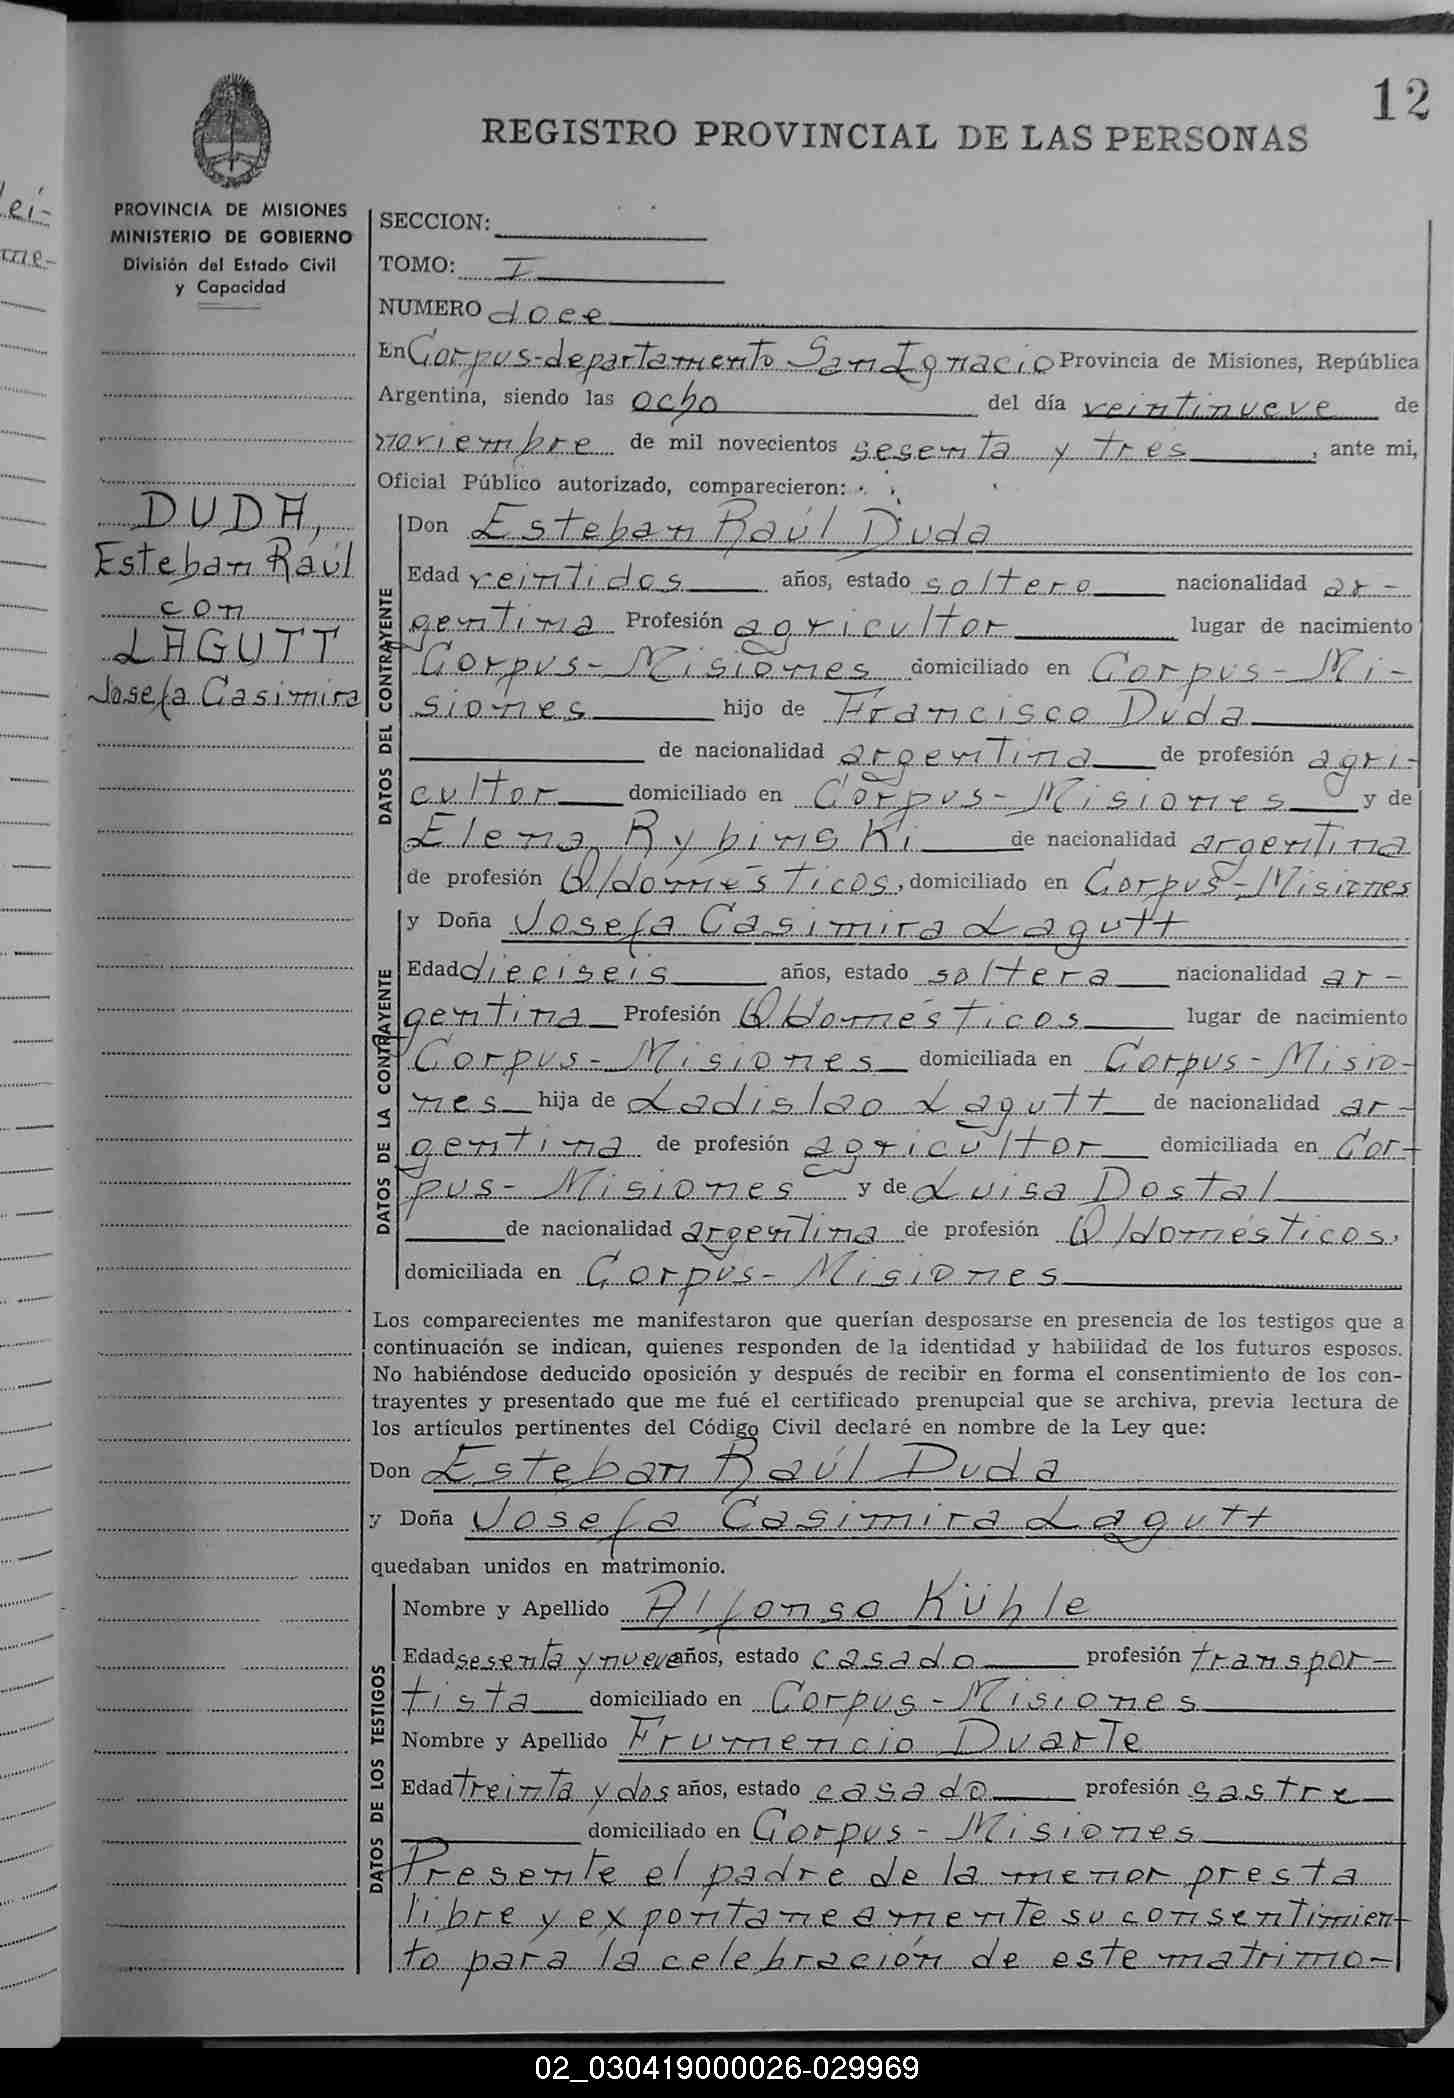 lei-
me-
12
REGISTRO PROVINCIAL DE LAS PERSONAS
PROVINCIA DE MISIONES
MINISTERIO DE GOBIERNO
División del Estado Civil
y Capacidad
DUDA,
Esteban Raúl
con
LAGUTT
Josefa Casimira
SECCION:
TOMO: I
NUMERO doce
En Corpus-departamento San Ignacio Provincia de Misiones, República
Argentina, siendo las ocho del día veintinueve de
noviembre de mil novecientos sesenta y tres, ante mi,
Oficial Público autorizado, comparecieron:
DATOS DEL CONTRAYENTE
Don Esteban Raúl Duda
Edad veintidos años, estado soltero nacionalidad ar-
gentina Profesión agricultor lugar de nacimiento
Corpus-Misiones domiciliado en Corpus-Mi-
siones hijo de Francisco Duda
de nacionalidad argentina de profesión agri-
cultor domiciliado en Corpus-Misiones y de
Elena Rybinski de nacionalidad argentina
de profesión Q/domésticos, domiciliado en Corpus-Misiones
DATOS DE LA CONTRAYENTE
y Doña Josefa Casimira Lagutt
Edad dieciseis años, estado soltera nacionalidad ar-
gentina Profesión Q/domésticos lugar de nacimiento
Corpus-Misiones domiciliada en Corpus-Misio-
nes hija de Ladislao Lagutt de nacionalidad ar-
gentina de profesión agricultor domiciliada en Cor-
pus-Misiones y de Luisa Dostal
de nacionalidad argentina de profesión Q/domésticos,
domiciliada en Corpus-Misiones
Los comparecientes me manifestaron que querían desposarse en presencia de los testigos que a
continuación se indican, quienes responden de la identidad y habilidad de los futuros esposos.
No habiéndose deducido oposición y después de recibir en forma el consentimiento de los con-
trayentes y presentado que me fué el certificado prenupcial que se archiva, previa lectura de
los artículos pertinentes del Código Civil declaré en nombre de la Ley que:
Don Esteban Raúl Duda
y Doña Josefa Casimira Lagutt
quedaban unidos en matrimonio.
DATOS DE LOS TESTIGOS
Nombre y Apellido Alfonso Kühle
Edad sesenta y nueve años, estado casado profesión transpor-
tista domiciliado en Corpus-Misiones
Nombre y Apellido Frumencio Duarte
Edad treinta y dos años, estado casado profesión sastre
domiciliado en Corpus-Misiones
Presente el padre de la menor presta
libre y expontaneamente su consentimien-
to para la celebración de este matrimo-
02_030419000026-029969